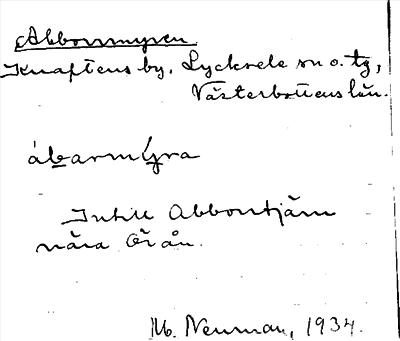 Abborrmyren
Knaftens by, Lycksele sn o. tg,
Västerbottens län.
åbarmyra
Intill Abborrtjärn
nära Örån.
M. Neuman, 1934.